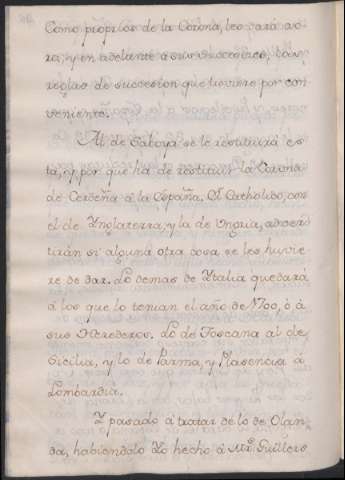 Como proprios de la Corona, les dará aora
ra, y en adelante á sus Successores, las
reglas de succesion que tuviere por con
veniente.
Al de Saboya se le restituirá es
ta, y por que ha de restituir la Corona
de Cerdeña á la España. El Catholico, con
el de Ynglaterra, y la de Ungria, adver
tirán si alguna otra cosa se les huvie
re de dar. Lo demas de Ytalia quedará
á los que lo tenian el año de 1700, ó á
sus Herederos. Lo de Toscana al de
Sicilia, y lo de Parma, y Plasencia á
Lombardia.
Y pasado á tratar de lo de Olan
da, habiendolo Yo hecho á Mr. Guillers